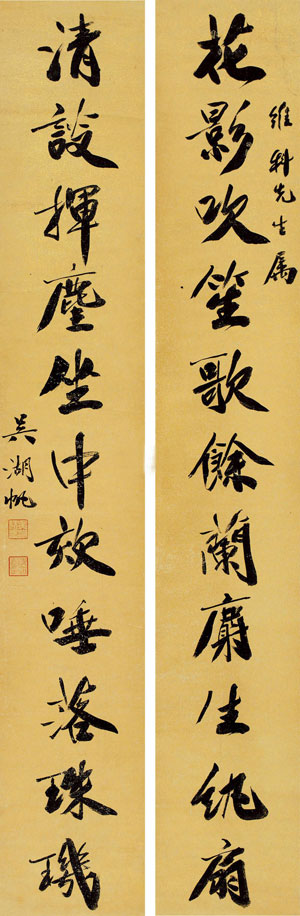 維科先生属
花影吹笙歌餘蘭麝生紈扇
清談揮麈坐中欬唾落珠璣
吳湖帆